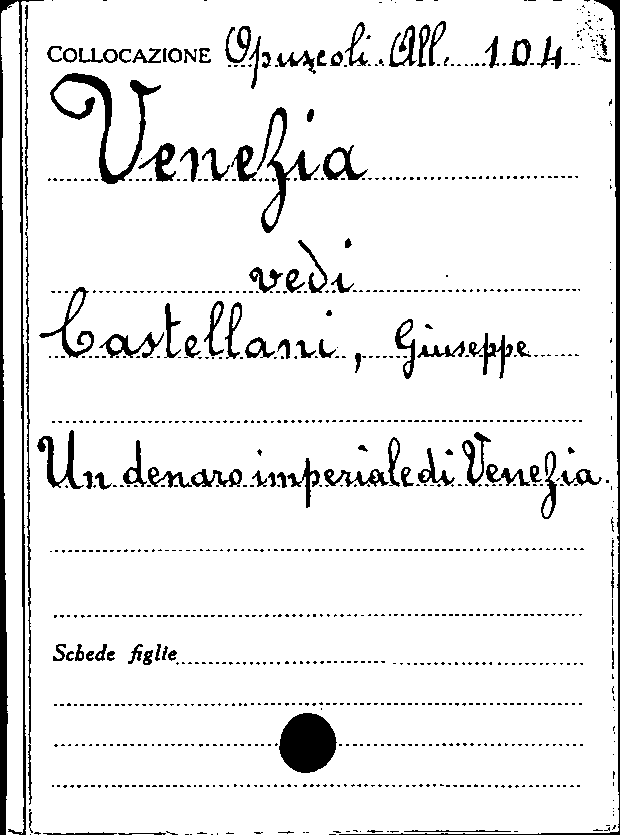 COLLOCAZIONE Opuscoli. All. 104
Venezia
vedi
Castellani, Giuseppe
Un denaro imperiale di Venezia.
Schede figlie